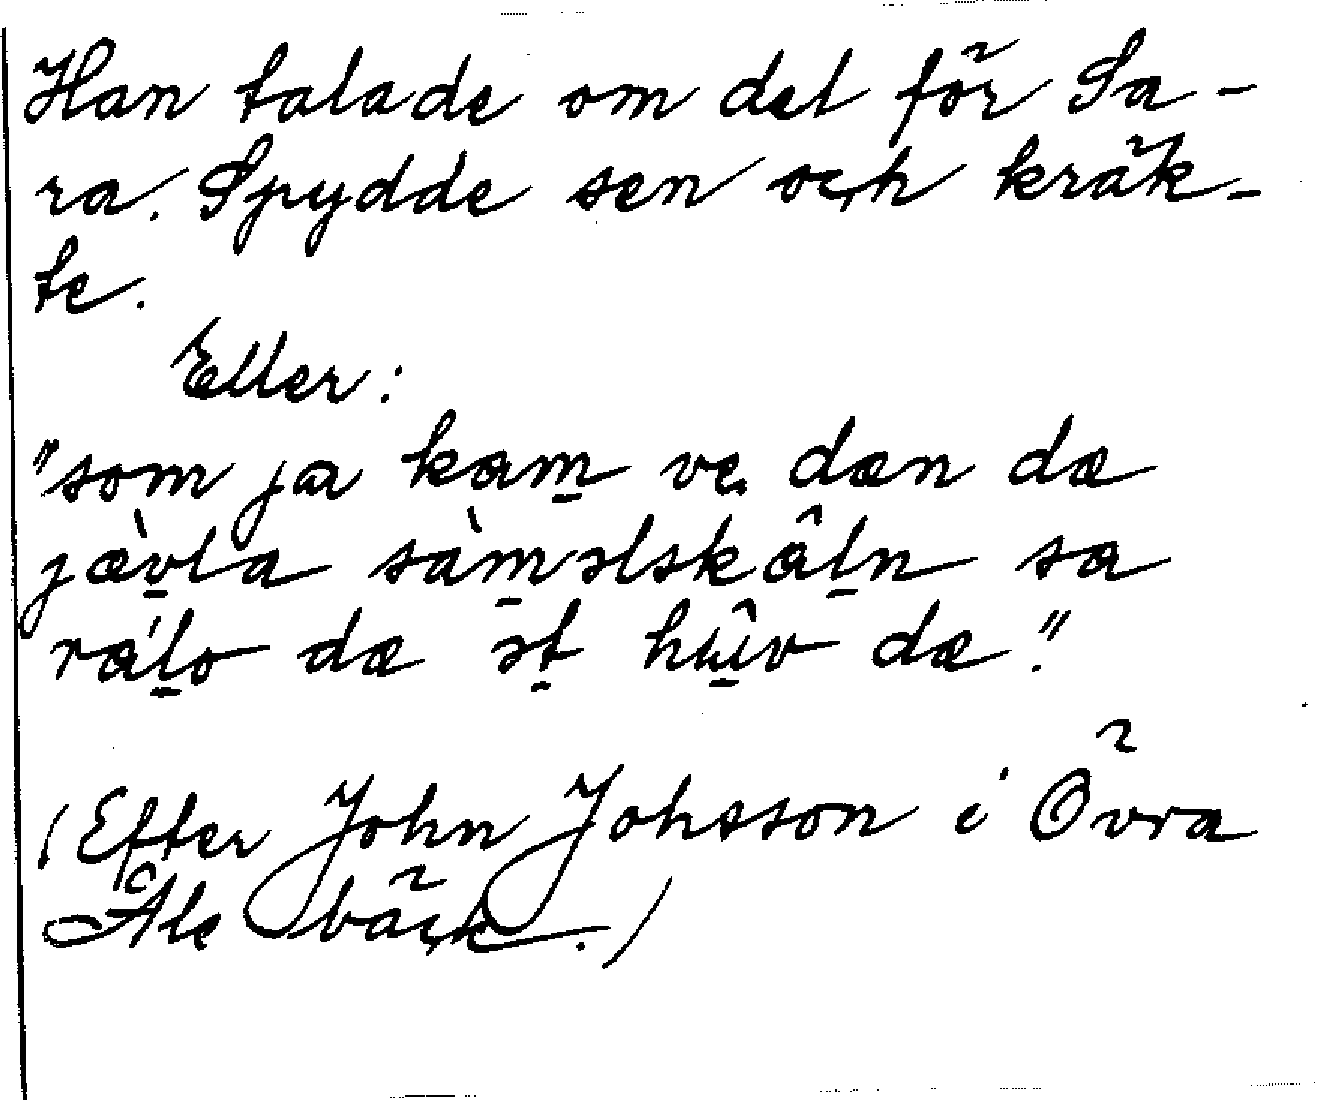 Han talade om det för Sa-
ra. Spydde sen och kräk-
te.
Eller:
"som ja kam̲ ve dæn dæ
jæ̀v̲la sàm̲əlskâl̲n sa
rál̲o dæ ət̲ hɯ̲̂v dæ."
(Efter John Johsson i Övra
Åle bäck.)